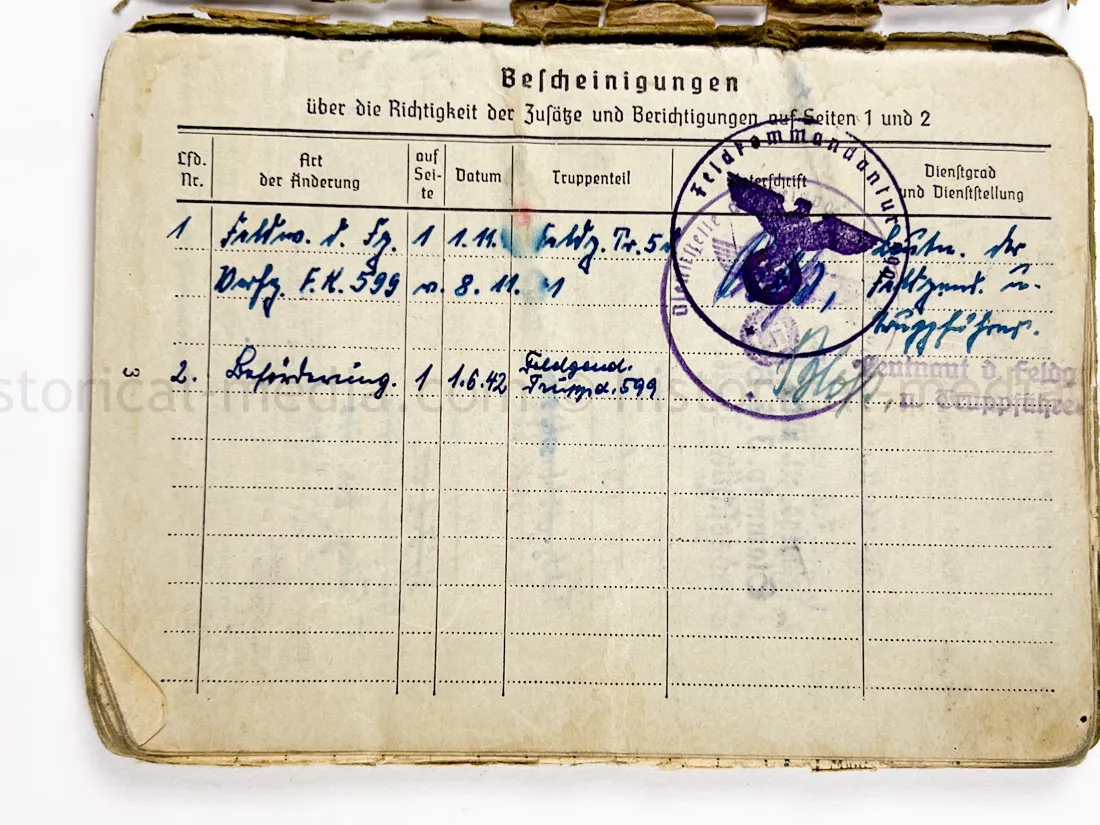 Bescheinigungen
über die Richtigkeit der Zusätze und Berichtigungen auf Seiten 1 und 2
Lfd. Nr.
Art der Änderung
auf Sei- te
Datum
Truppenteil
Unterschrift
Dienstgrad und Dienststellung
1 Feldw. d. Fg. 1 1.11. Feldg. Tr. Leutn. der
Verfg. F.K. 599 v. 8. 11. 41 Feldgend. u.
Truppführer.
2. Beförderung. 1 1.6.42 Feldgend.
Truppd. 599
Leutnant d. Feldg
u. Truppführer
Feldkommandantur
Dienststelle
3